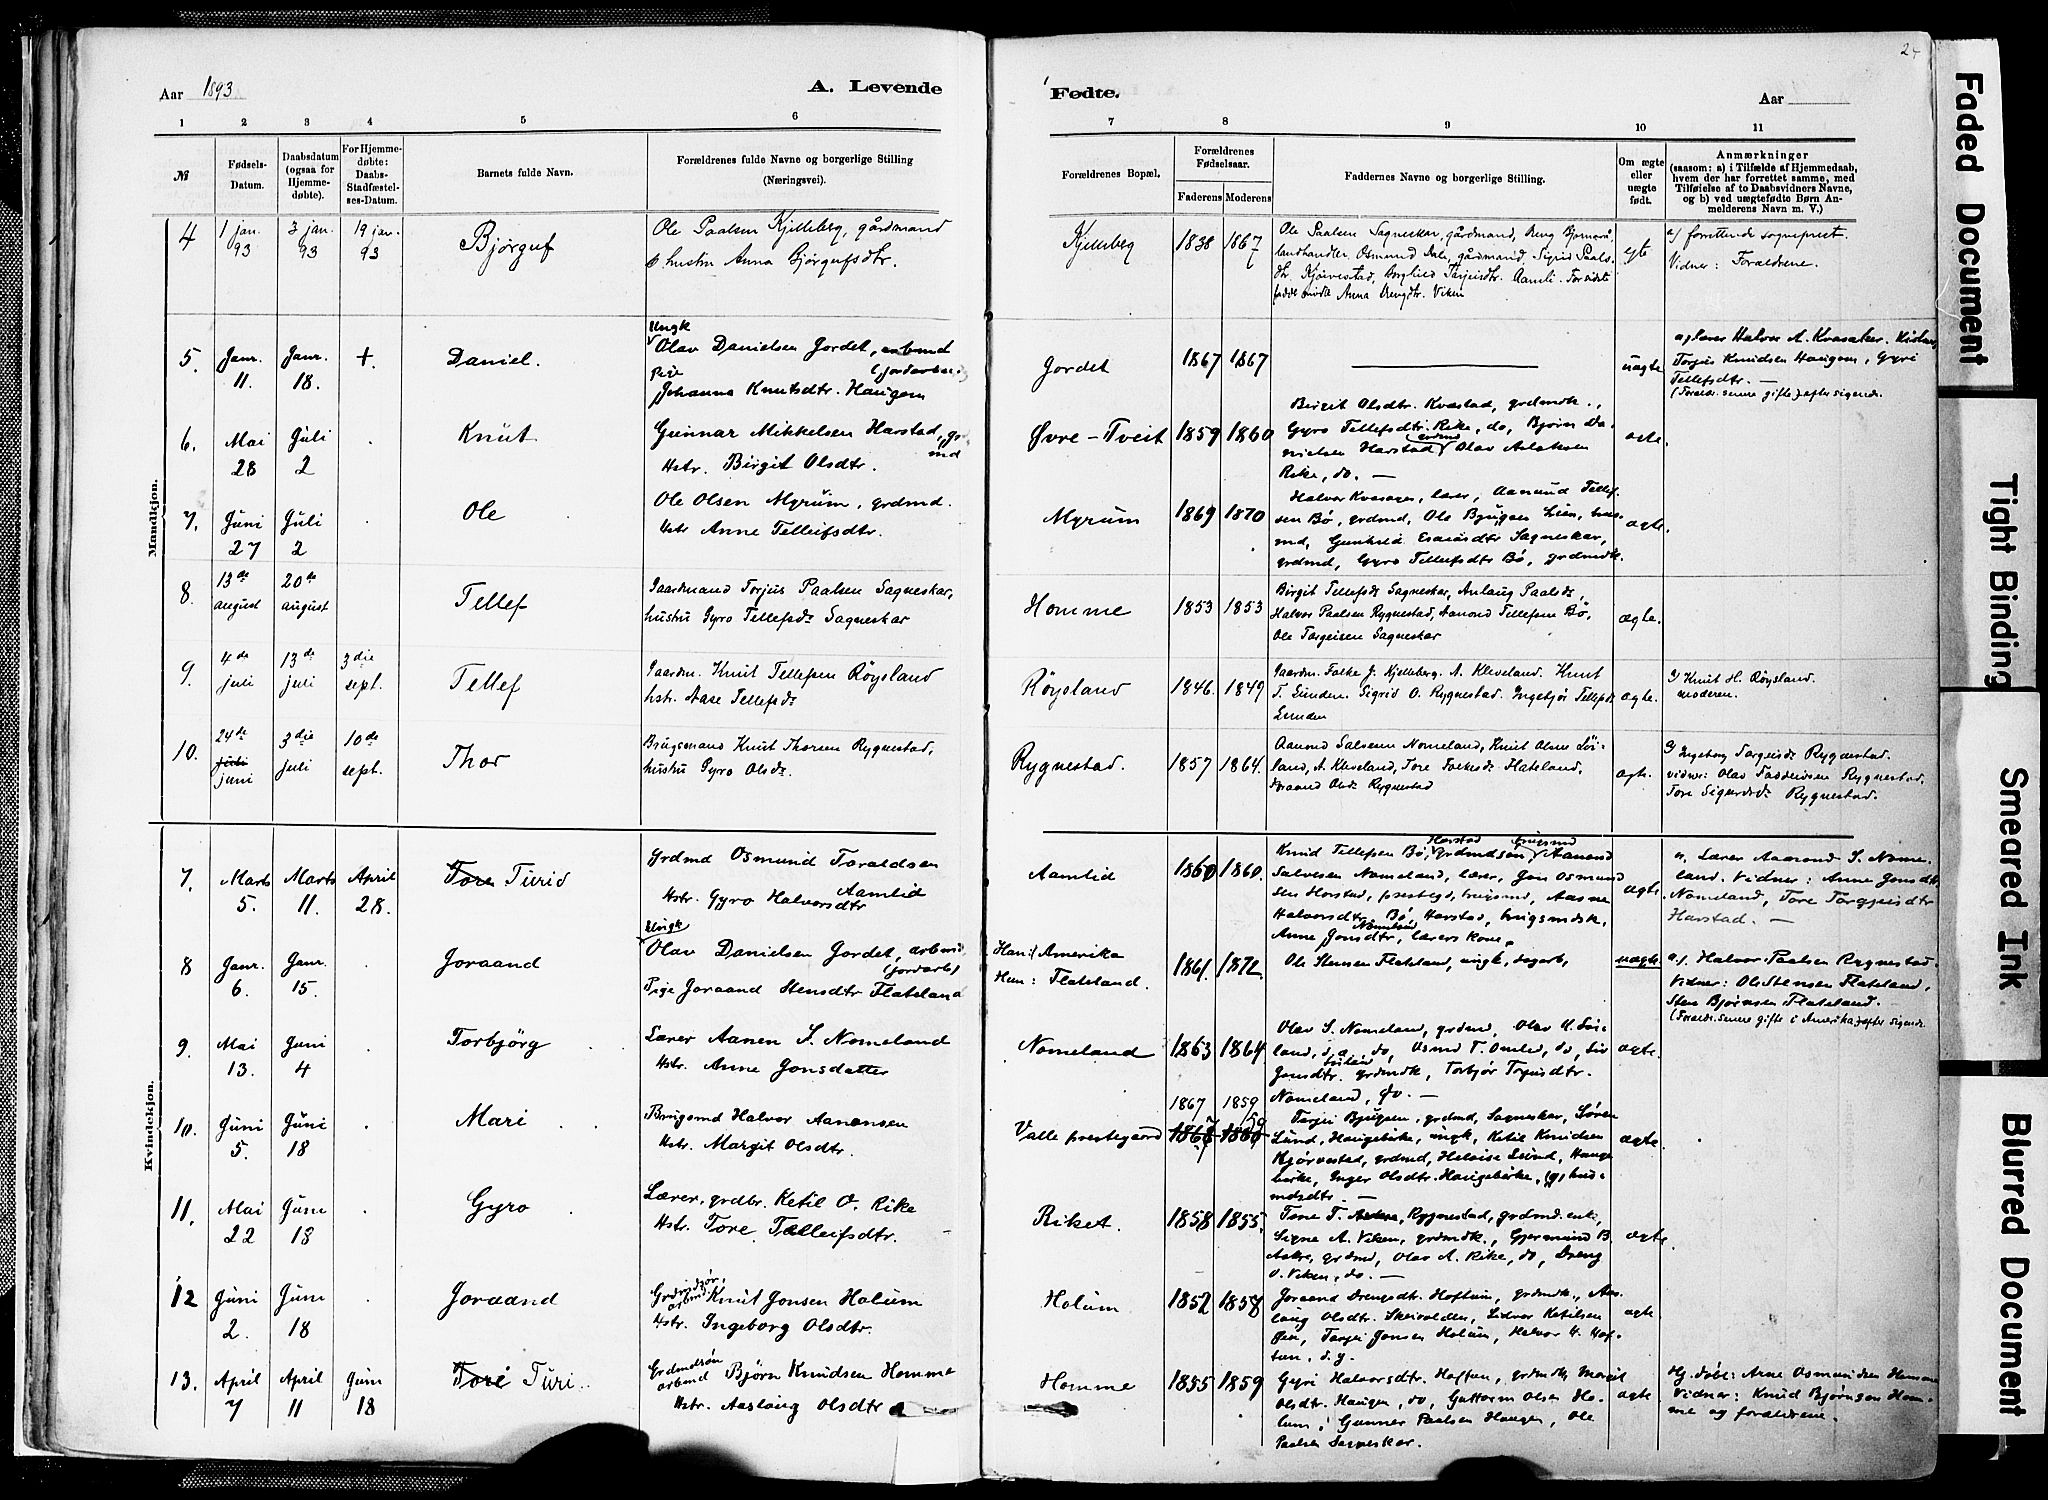 24
Aar 1893
A. Levende
Fødte.
Aar
1 2 3 4 5 6 7 8 9 10 11
№
Fødsels-
Datum.
Daabsdatum
(ogsaa for
Hjemme-
døbte).
For Hjemme-
døbte:
Daabs-
Stadfæstel-
ses-Datum.
Barnets fulde Navn.
Forældrenes fulde Navne og borgerlige Stilling
(Næringsvei).
Forældrenes Bopæl.
Forældrenes
Fødselsaar.
Faderens
Moderens
Faddernes Navne og borgerlige Stilling.
Om ægte
eller
uægte
født.
Anmærkninger
(saasom: a) i Tilfælde af Hjemmedaab,
hvem der har forrettet samme, med
Tilføielse af to Daabsvidners Navne,
og b) ved uægtefødte Børn An-
melderens Navn m. V.)
Mandkjøn.
4
1 jan.
93
3 jan.
93
19 jan.
93
Bjørguf
Ole Paalsen Kjelleberg, gårdmand
hustru Anna Bjørgufsdtr.
Kjelleberg
1838
1867
Ole Paalsen Sagneskar, gårdmand, Dreng Bjørnarå,
landhandler, Osmund Dale, gårdmand, Sigrid Paals-
dtr. Kjørvestad, Borghild Tarjeisdtr. Aamli.
Anna Drengdtr. Viken
egte
a) forrettende sogneprest.
Vidner: Forældrene.
5.
Janr.
11.
Janr.
18.
+.
Daniel.
Ungk
Olav Danielsen Jordet, arbmd
(jordarb
Pige
Johanna Knutsdtr. Haugen
Jordet
1867
1867
uægte
Halvor A. Kvasaker.
Torjus Knudsen Haugen, Gyri
Tellefsdtr. —
(Foræld. senere gifte) efter sigende.
6.
Mai
28
Juli
2
.
Knut
Gunnar Mikkelsen Harstad, gr
md
Hstr. Birgit Olsdtr.
Øvre-Tveit
1859
1860
Birgit Olsdtr. Kvestad, grdmdk.,
Gyro Tellefsdtr. Rike, do, Bjørn Da-
nielsen Harstad grdmd Olav Aslaksen
Rike, do. —
ægte.
7.
Juni
27
Juli
2
.
Ole
Ole Olsen Myrum, grdmd.
Hstr Anne Telleifsdtr.
Myrum
1869
1870
Halvor Kvasager, lærer, Aamund Tellef-
sen Bø, grdmd, Ole Bjugsen Lien, hus-
md, Gunhild Esaiasdtr Sagneskar,
grdmd, Gyro Tellefsdtr Bø, grdmdk.
ægte.
8.
13de
august
20de
august
Tellef
Gaardmand Torjus Paalsen Sagneskar,
hustru Gyro Tellefsdr Sagneskar
Homme
1853
1853
Birgit Tellefsdr Sagneskar, Anlaug Paalsdr,
Halvor Paalsen Rygnestad, Aanond Tellefsen Bø,
Ole Targeisen Sagneskar
ægte.
9.
4de
juli
13de
juli
3die
sept.
Tellef
Gaardm. Knut Tellefsen Røysland
hstr. Aase Tellefsdr
Røysland
1846.
1849
Gaardm. Folke J. Kjelleberg. A. Kleveland. Knut
T. Lunden. Sigrid O. Rygnestad. Ingebjør Tellefsdr
Lunden
ægte.
Knut H. Røysland.
moderen.
10.
24de
juli
juni
3die
juli
10de
sept.
Thor
Brugsmand Knut Thorsen Rygnestad,
hustru Gyro Olsdr.
Rygnestad.
1857
1864.
Aanond Salvesen Nomeland, Knut Olsen Løi-
land, A. Kleveland, Tore Folkesdr Hateland,
Joraand Olsdr Rygnestad
ægte.
Ingeborg Targeisdr Rygnestad.
vidner: Olav Taddeisen Rygnestad.
Tore Sigurdsdr Rygnestad.
Kvindekjøn.
7.
Marts
5.
Marts
11.
April
28.
Tore Turid
Grdmd Osmund Toraldsen
Aamlid
Hstr. Gyro Halvorsdtr
Aamlid
1860
1860.
Harstad brugsmd
Knud Tellefsen Bø, grdmdsen Aanund
Salvesen Nomeland, lærer, Jon Osmund
sen Harstad, prestegd, brugsmd, Aasne
Halvorsdtr Bø, Harstad, brugsmdsk,
Nomeland
Anne Jonsdtr, lærers kone.
ægte.
a, Lærer Aanond S. Nome-
land. Vidner: Anne Jonsdtr
Nomeland, Tore Torgjusdtr
Harstad. —
8
Janr.
6.
Janr.
15.
.
Joraand
Ungk
Olav Danielsen Jordet, arbmd
(jordarb)
Pige Joraand Stensdtr Flateland
Han: Amerika
Hun: Flateland.
1861.
1872.
Ole Stensen Flateland, ungk, dagarb,
uægte
a). Halvor Paalsen Rygnestad.
Vidner: Ole Stensen Flateland,
Sten Bjørnsen Flateland. —
(Foræld. senere gifte i Amerika) efter sigende.
9.
Mai
13.
Juni
4
.
Torbjörg
Lærer Aanen S. Nomeland
Hstr. Anne Jonsdatter
Nomeland
1863
1864
Olav S. Nomeland, grdmd, Olav U. Löi-
land, do, Osmd T. Omlid, do, Siv
Jonsdtr. grdmdk, Torbjør Torjusdtr.
Nomeland, do. —
ægte.
10.
Juni
5.
Juni
18
.
Mari
Brugsmd Halvor Aanensen
Hstr. Margit Olsdtr.
Valle prestegaard
1867
1859
Tarjei Bjugsen, grdmd, Sagneskar, Søren
Lund, Haugebirke, ungk, Ketil Knudsen
Kjørvestad, grdmd, Heloise Lund, Hauge
birke, Inger Olsdtr. Haugebirke, hus-
mdsdtr. —
ægte.
11.
Mai
22
Juni
18
.
Gyro
Lærer, grdbr. Ketil O. Rike
Hstr. Tore Telleifsdtr.
Riket.
1858
1855.
Tone T. Rygnestad, grdmd.enk,
Signe A. Viken, grdmdk., Gjermund B.
Aakre, grdmd, Olav A. Rike, do, Dreng
O. Viken, do. —
ægte.
12
Juni
2.
Juni
18
.
Joraand
Grdmdsøn,
arbmd Knut Jonsen Holum
Hstr. Ingeborg Olsdtr.
Holum
1852
1858
Joraand Drengsdtr. Hoftun, grdmdk., Aas-
laug Olsdtr. Skeivolden, Sidver Ketilsen
Tarjei Jonsen Holum, Halvor H. Hof-
tun, d.y.
ægte
13.
April
7
April
11
Juni
18
Tore Turi.
Grdmdsøn
arbmd Bjørn Knudsen Homme
Hstr. Aaslaug Olsdtr
Homme
1855
1859
Gyri Halvorsdtr. Hoftun, grdmdk, Margit
Olsdtr. Haugen, do, Guttorm Olsen Ho-
lum, Gunner Paalsen Haugen, Ole
Paalsen Sagneskar.
ægte
Hj. døbt: Arne Osmundsen Homme
Vidner: Knud Bjørnson Hom-
me og forældrene.
Faded Document
Tight Binding
Smeared Ink
Blurred Document